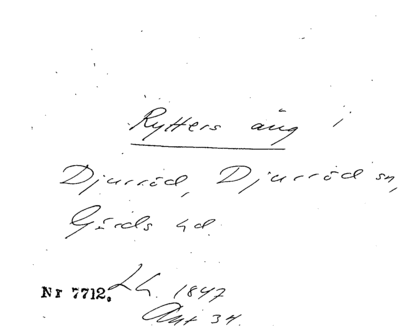 Rytters äng i
Djurröd, Djurröd sn,
Gärds hd.
Nr 7712. Lh. 1847
Akt 34.